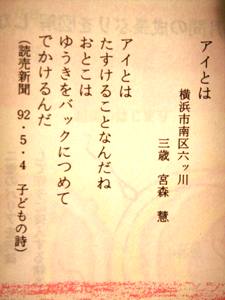 アイとは
横浜市南区六ッ川
三歳 宮森 慧
アイとは
たすけることなんだね
おとこは
ゆうきをバックにつめて
でかけるんだ
(読売新聞 92・5・4 子どもの詩)